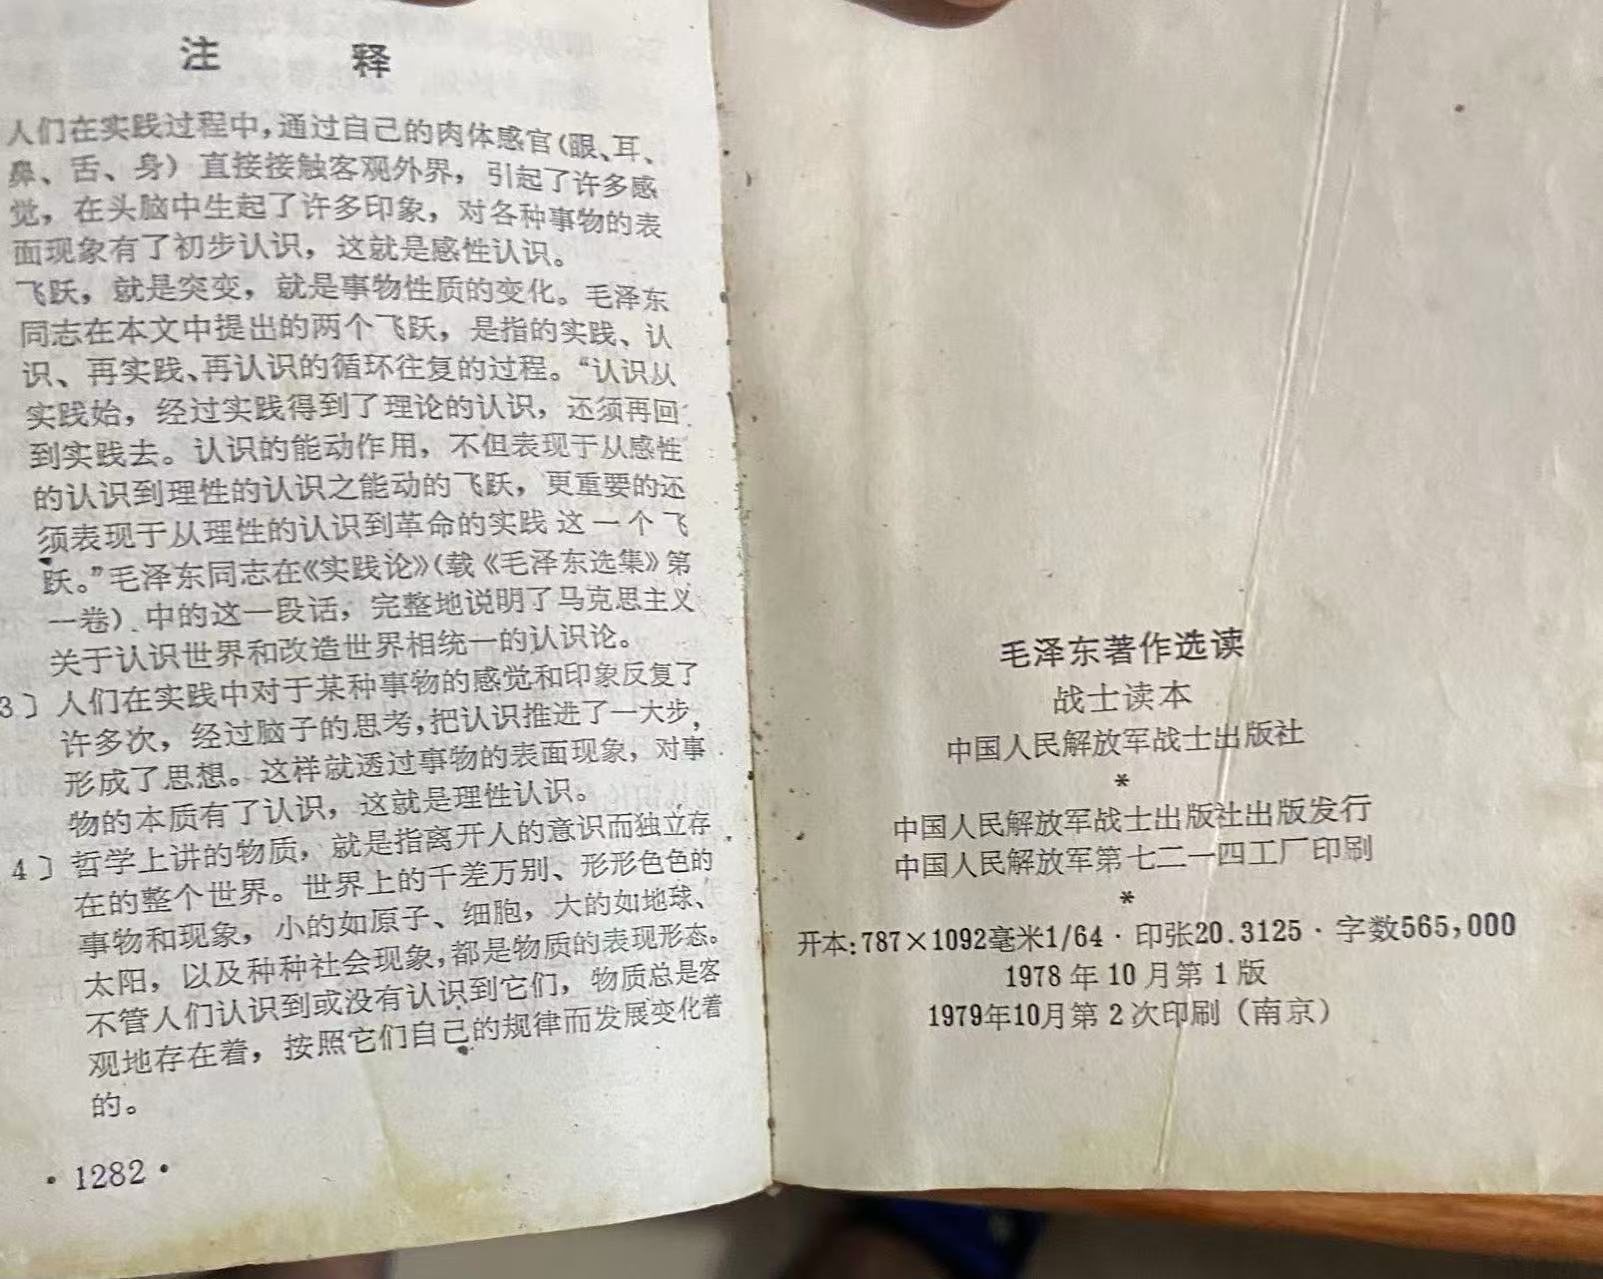 注 释
人们在实践过程中,通过自己的肉体感官(眼、耳、
鼻、舌、身)直接接触客观外界，引起了许多感
觉，在头脑中生起了许多印象，对各种事物的表
面现象有了初步认识，这就是感性认识。
飞跃，就是突变，就是事物性质的变化。毛泽东
同志在本文中提出的两个飞跃，是指的实践、认
识、再实践、再认识的循环往复的过程。“认识从
实践始，经过实践得到了理论的认识，还须再回
到实践去。认识的能动作用，不但表现于从感性
的认识到理性的认识之能动的飞跃，更重要的还
须表现于从理性的认识到革命的实践这一个飞
跃。”毛泽东同志在《实践论》(载《毛泽东选集》第
一卷)中的这一段话，完整地说明了马克思主义
关于认识世界和改造世界相统一的认识论。
3〕人们在实践中对于某种事物的感觉和印象反复了
许多次，经过脑子的思考,把认识推进了一大步，
形成了思想。这样就透过事物的表面现象，对事
物的本质有了认识，这就是理性认识。
4〕哲学上讲的物质，就是指离开人的意识而独立存
在的整个世界。世界上的千差万别、形形色色的
事物和现象，小的如原子、细胞，大的如地球、
太阳，以及种种社会现象,都是物质的表现形态。
不管人们认识到或没有认识到它们，物质总是客
观地存在着，按照它们自己的规律而发展变化着
的。
·1282·
毛泽东著作选读
战士读本
中国人民解放军战士出版社
*
中国人民解放军战士出版社出版发行
中国人民解放军第七二一四工厂印刷
*
开本:787×1092毫米1/64·印张20.3125·字数565,000
1978年10月第1版
1979年10月第2次印刷(南京)